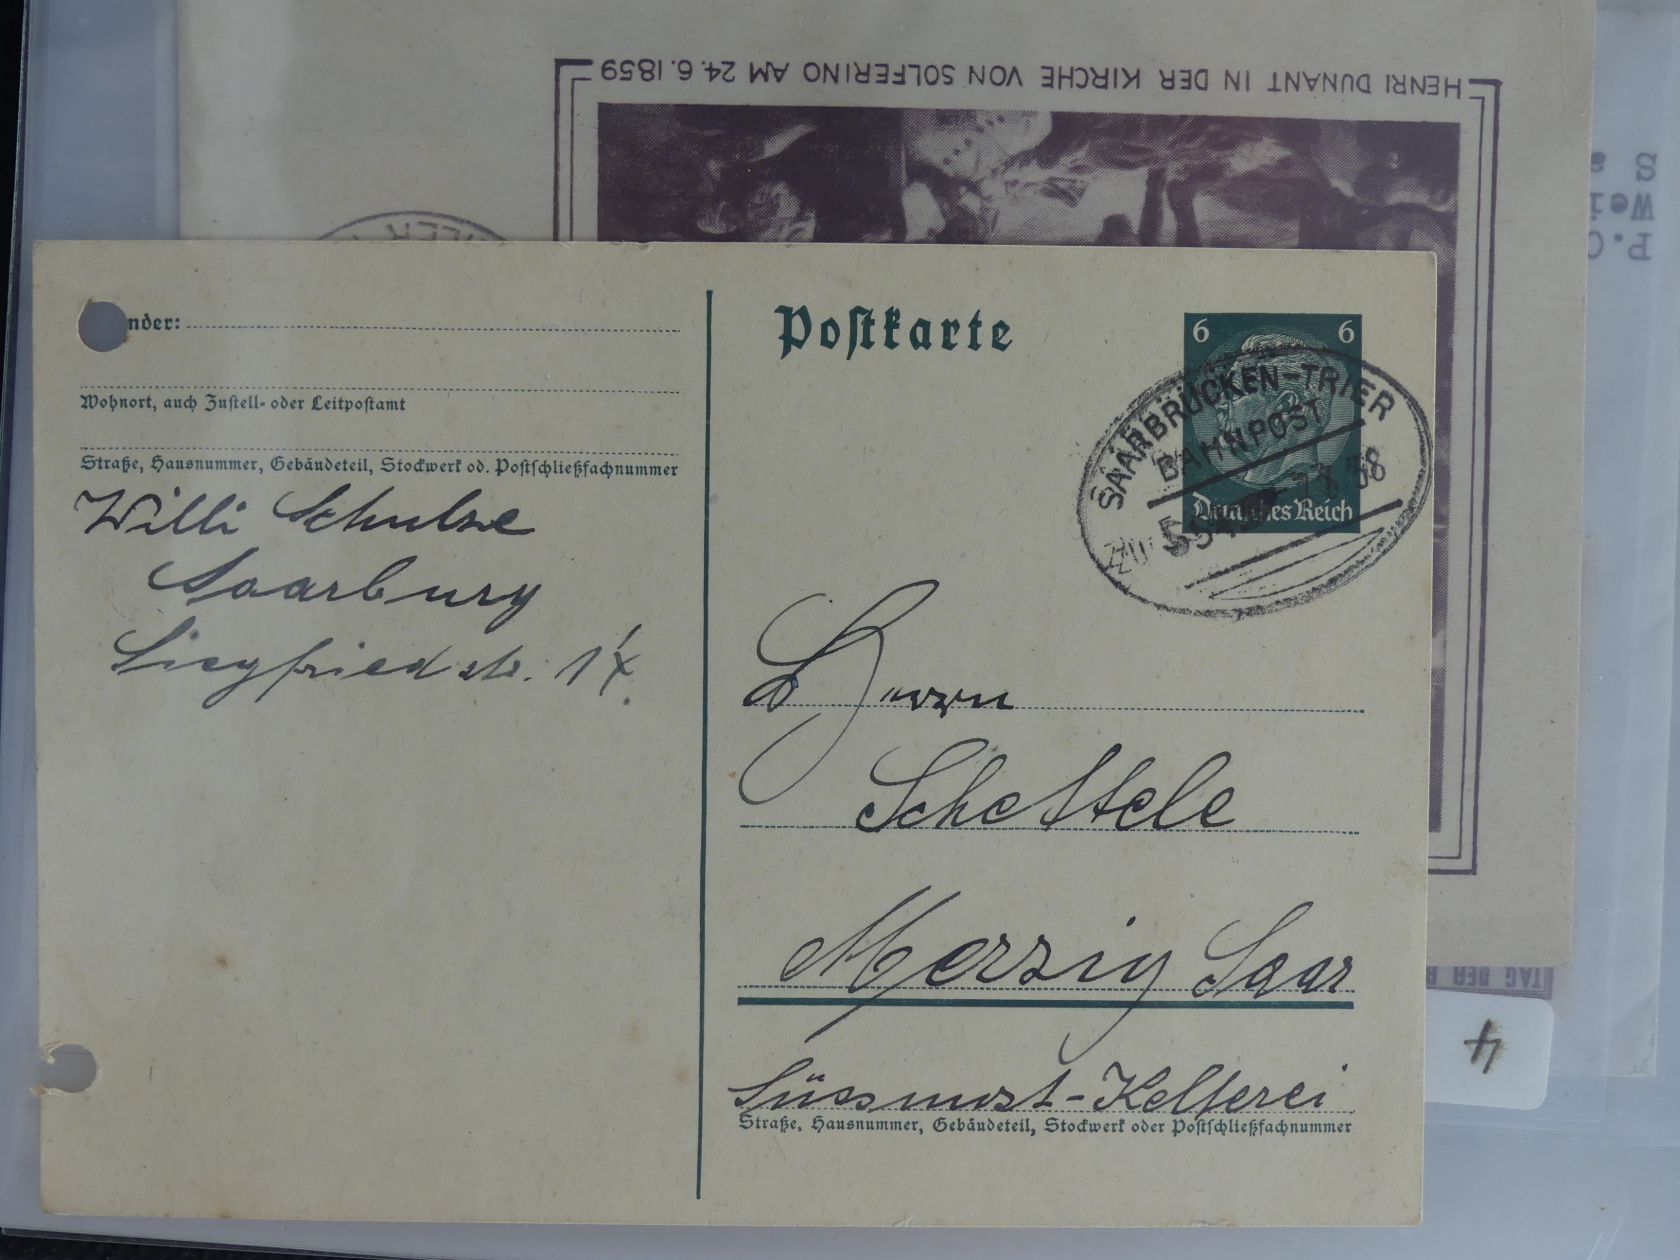 HENRI DUNANT IN DER KIRCHE VON SOLFERINO AM 24.6.1859
nder:
Wohnort, auch Zustell- oder Leitpostamt
Straße, Hausnummer, Gebäudeteil, Stockwerk od. Postschließfachnummer
Willi Schulze
Saarburg
Siegfriedstr.
Postkarte
6 6
Deutsches Reich
SAARBRÜCKEN-TRIER
BAHNPOST
Herrn
Schettele
Merzig Saar
Süssmost-Kelterei
Straße, Hausnummer, Gebäudeteil, Stockwerk oder Postschließfachnummer
TAG DER
4
P.O
Wei
S